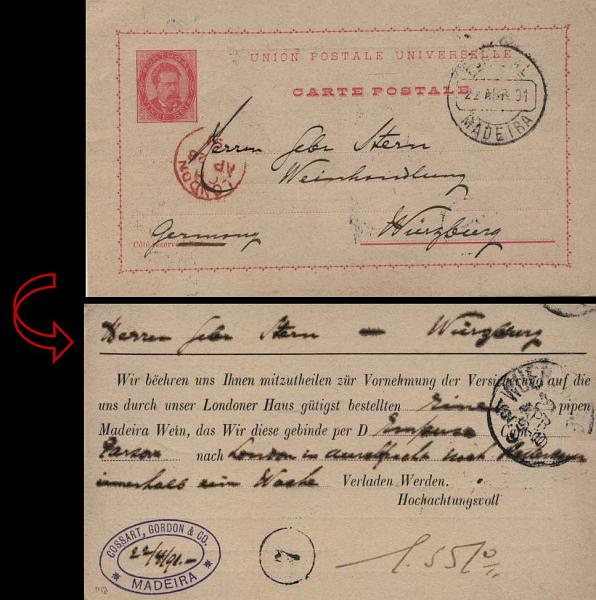 UNION POSTALE UNIVERSELLE
CARTE POSTALE
22 ABR. 91
MADEIRA
Herren Gebr Stern
LONDON
AP
Weinhandlung
Germany Würzburg
Côté réservé
Herren Gebr Stern — Würzburg
Wir bëehren uns Ihnen mitzutheilen zür Vornehmung der Versicherung auf die
uns durch unser Londoner Haus gütigst bestellten eine pipen
Madeira Wein, das Wir diese gebinde per D
nach London in
innerhalb ein Woche Verladen Werden.
Hochachtungsvoll
COSSART, GORDON & CO.
22/4/91.-
MADEIRA